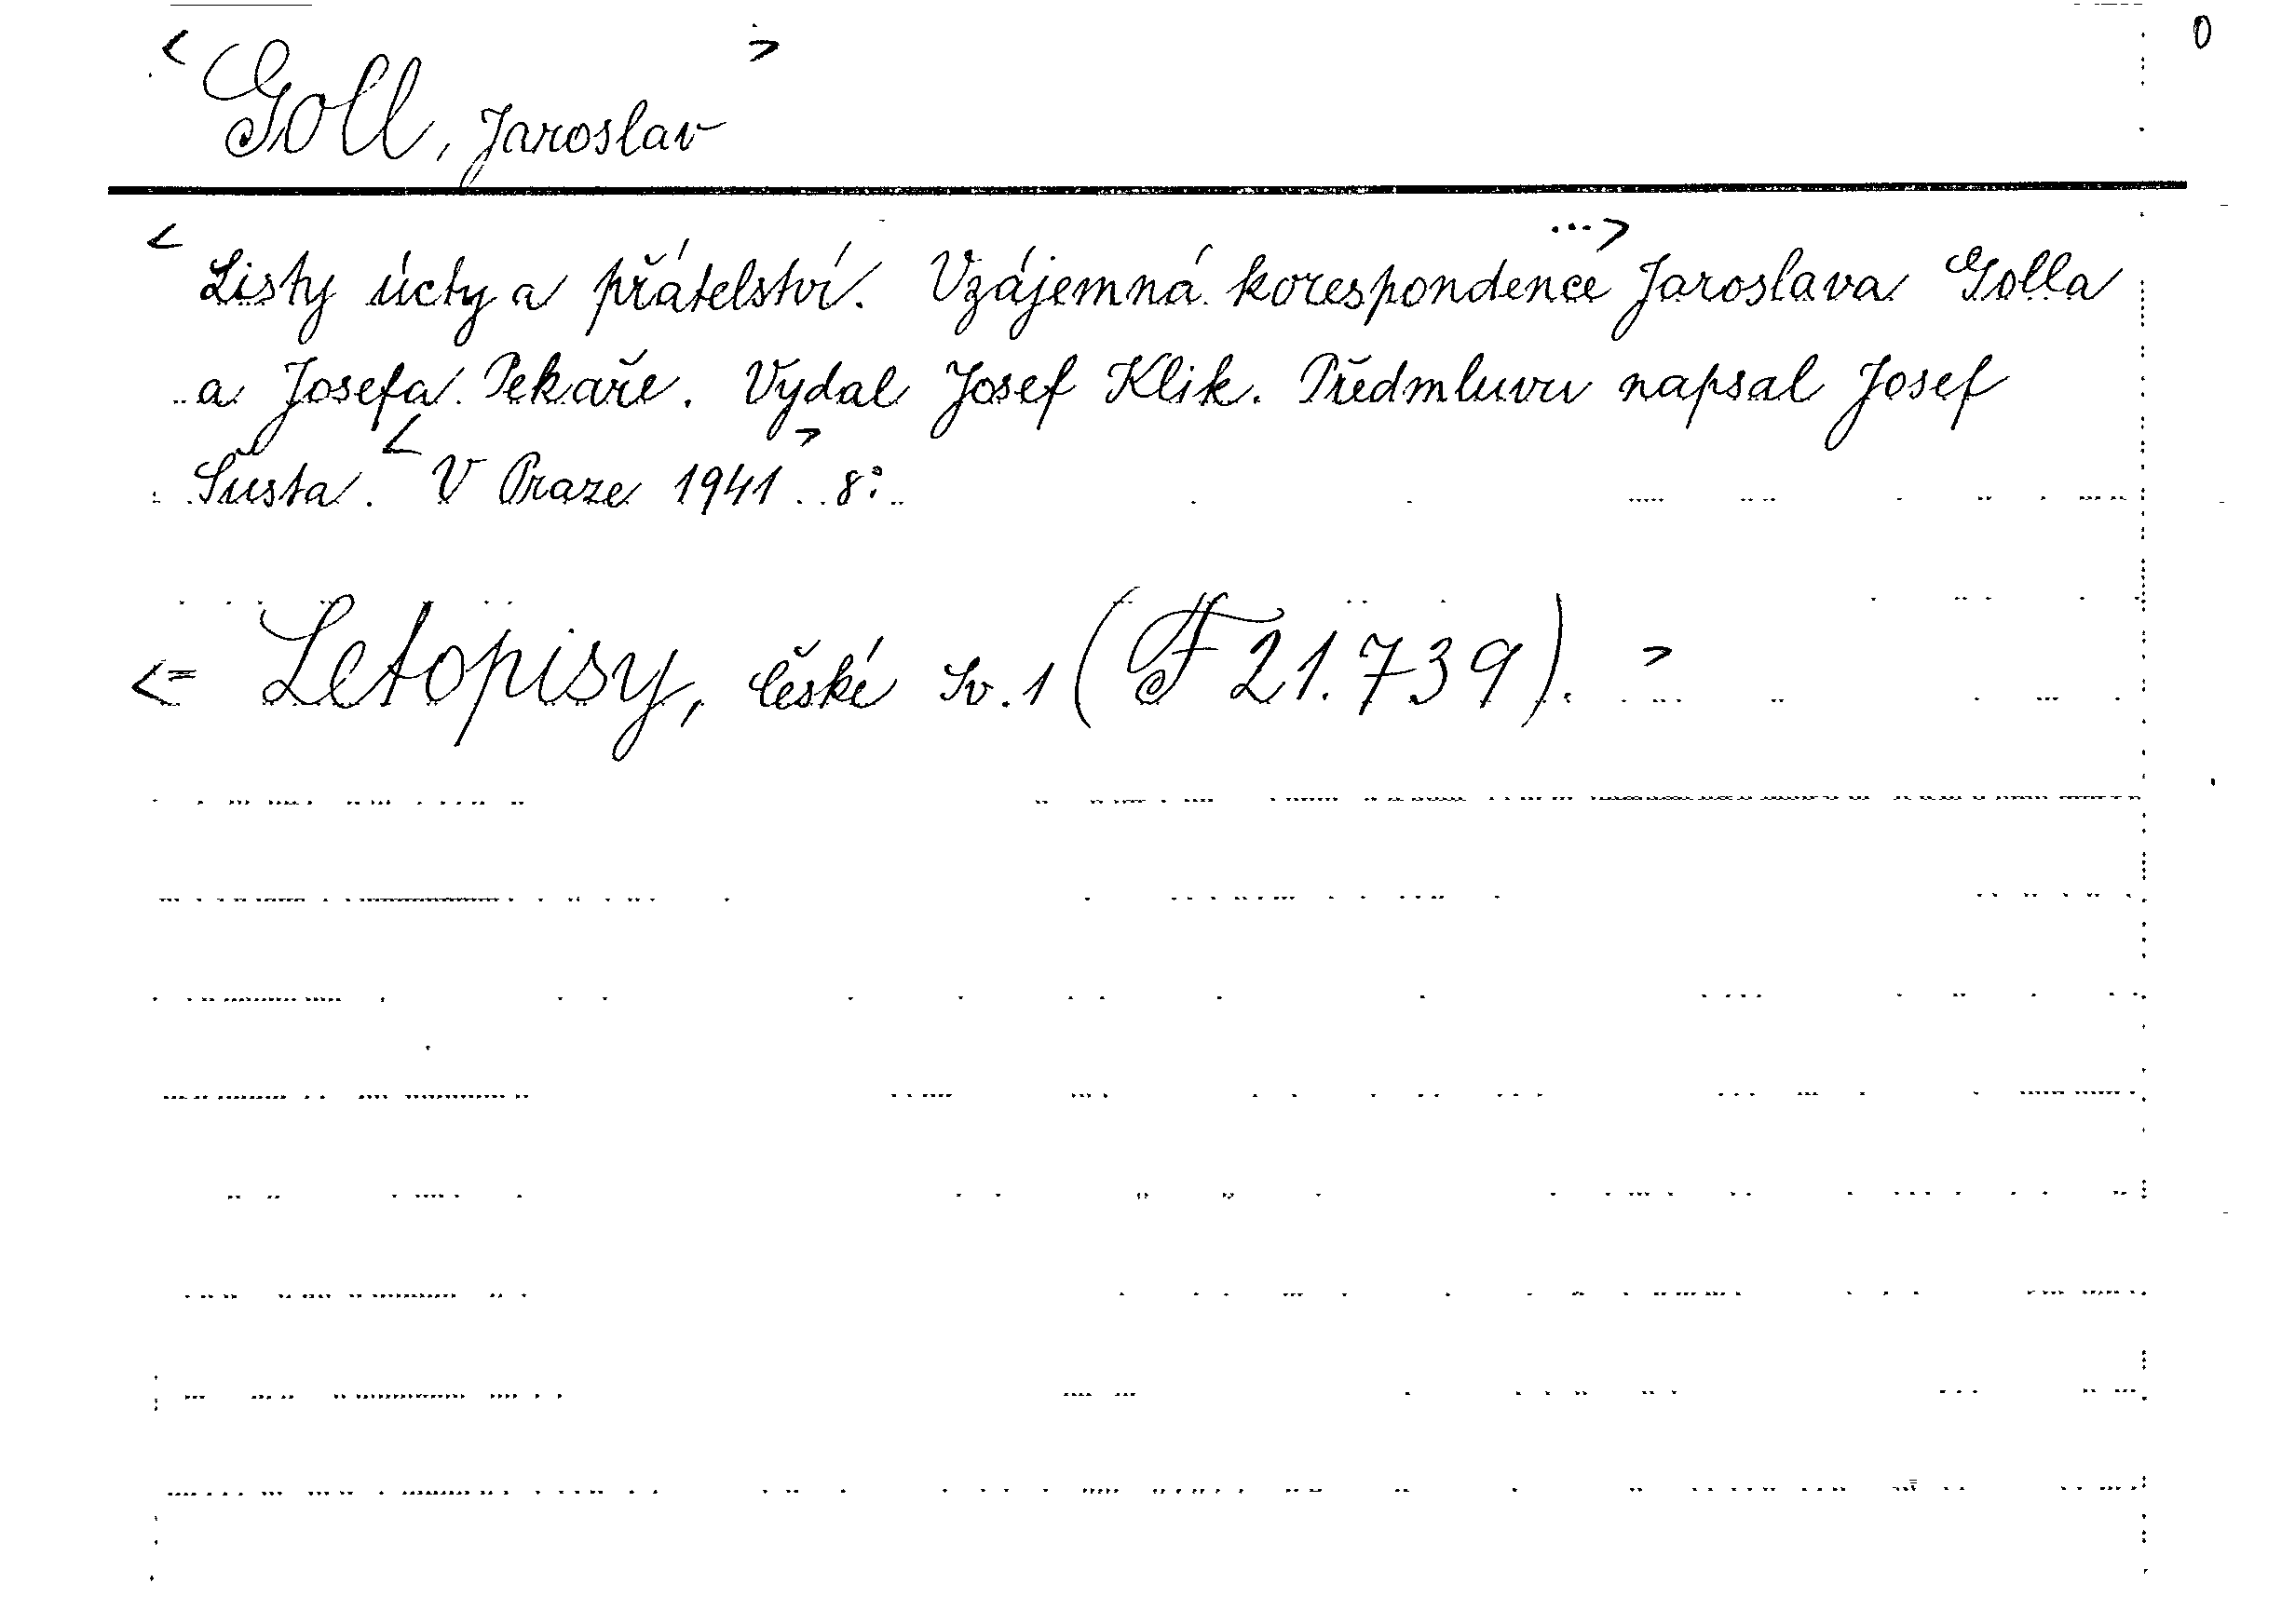 0
< Goll, Jaroslav >
< Listy úcty a přátelství. Vzájemná korespondence ...> Jaroslava Golla
a Josefa Pekaře. Vydal Josef Klik. Předmluvu napsal Josef
Šusta. < V Praze 1941 > 8°.
<= Letopisy, české Sv. 1 (F 21.739). >